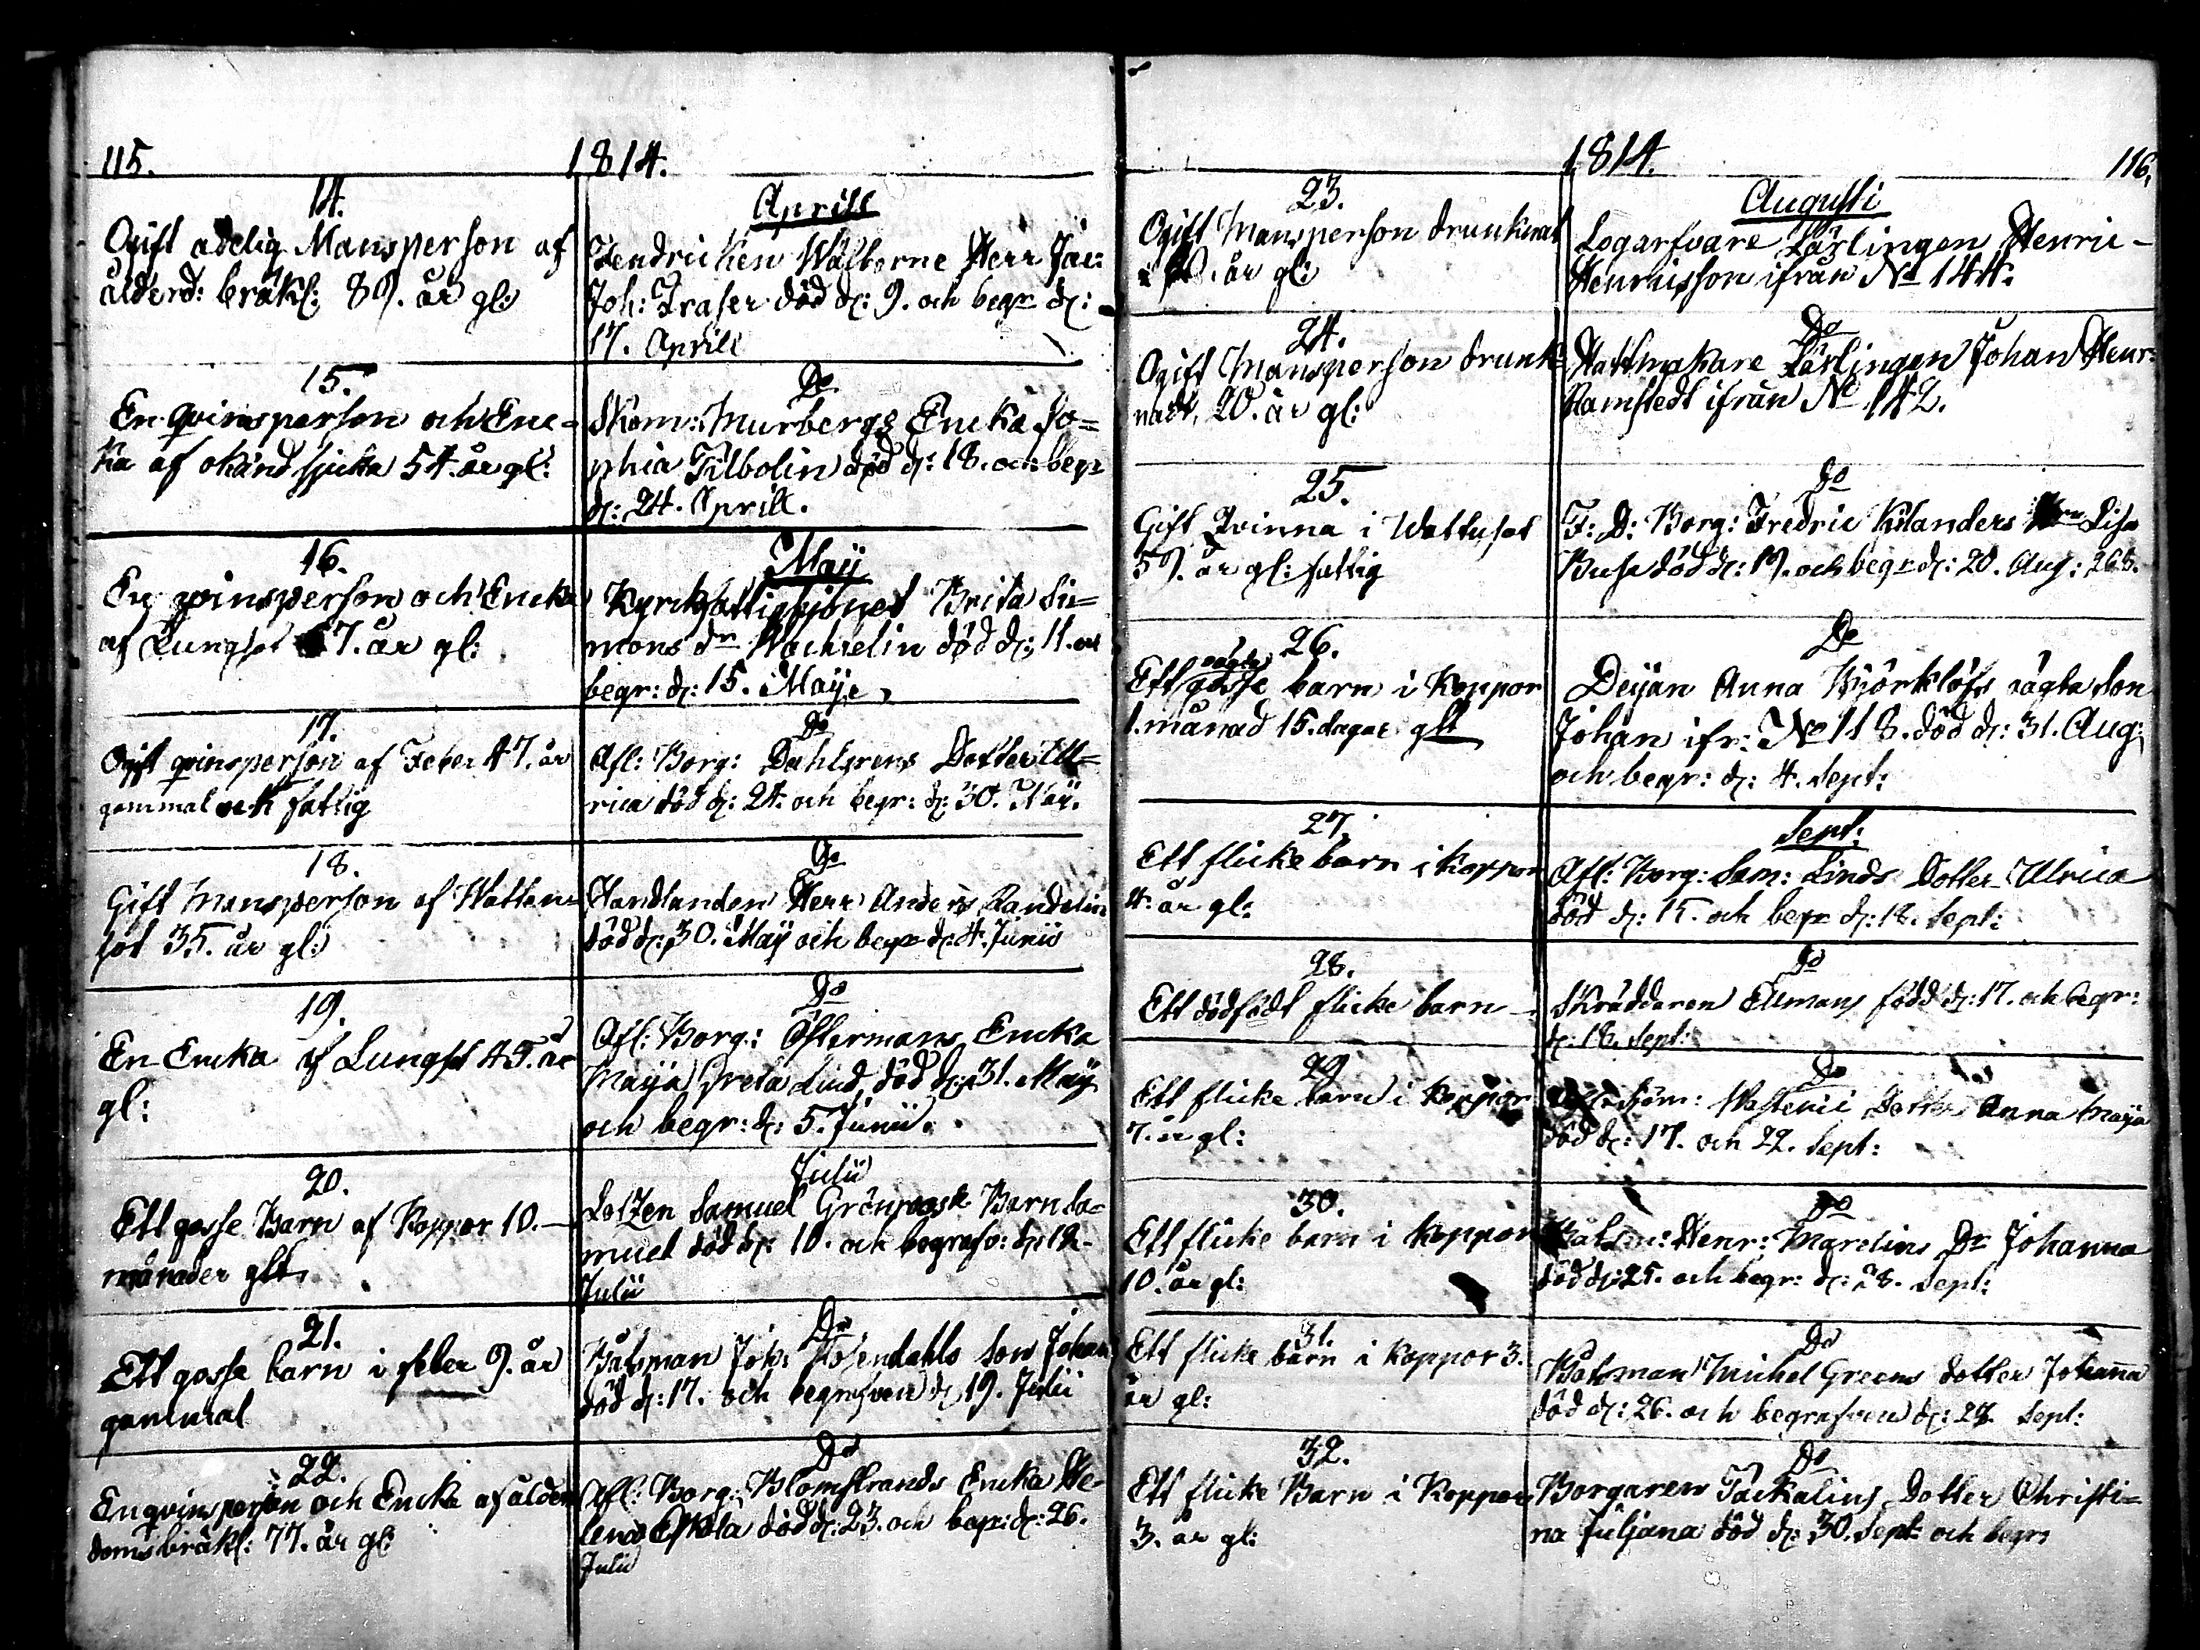 115. 1814.
14. Aprill
Ogift adelig Mansperson af
ålderd: bräkl: 89. år gl:
Hendricken Wälborne Herr Jac:
Joh: Fraser död d: 9. och begr d:
17. Aprill
15. Do
En qvinsperson och Enc-
ka af okänd sjuka 54. år gl:
Skom: Murbergs Encka So=
phia Tilbolin död d: 18. och begr
d: 24. Aprill.
16. Maij
En qvinsperson och Encka
af Lungsot 67. år gl:
Kyrkfattighjonet Brita Si=
mons dr Wachrelin död d: 11. och
begr: d: 15. Maije
17. Do
Ogift qvinsperson af Feber 47. år
gammal och fattig
Afl: Borg: Dahlgrens Dotter Ul=
rica död d: 24. och begr: d: 30. Maij.
18. Do
Gift Mansperson af Watten
sot 35. år gl:
Handlanden Herr Anders Randelin
död d: 30. Maij och begr d: 4. Junii
19. Do
En Encka af Lungsot 45. år
gl:
Afl: Borg: Östermans Encka
Maija Greta Lind, död d: 31. Maij
och begr: d: 5. Junii.
20. Julii
Ett gosse Barn af Koppor 10.
månader glt.
Lotzen Samuel Grönroos Barn Sa=
muel död d: 10. och begrafv: d: 12.
Julii
21. Do
Ett gosse barn i feber 9. år
gammal
Båtsman Joh: Rosendahls Son Johan
död d: 17. och begrafven d. 19. Julii
22. Do
En qvinsperson och Encka af ålder
doms bräkl: 77. år gl:
Afl: Borg: Blomstrands Encka He-
lena Eskola död d: 23. och begr: d: 26.
Julii
1814. 116.
23. Augusti
Ogift Mansperson drunknat
år gl:
Logarfvare Lärlingen Henric
Henricsson ifrån No 144.
24. Do
Ogift Mansperson drunk-
nadt, 20. år gl:
Hattmakare Lärlingen Johan Henr:
Ramstedt ifrån No 142.
25. Do
Gift Qvinna i Wattusot
59. år gl: fattig
F: D: Borg: Fredric Kilanders Lisa
Busa död d: 19. och begr d: 20. Aug:
26. Do
oägta
Ett gosse barn i Koppor
1. månad 15. dagar glt
Deijan Anna Björklöfs oägta Son
Johan ifr: No 118. död d: 31. Aug:
och begr: d: 4. Sept:
27. Sept:
Ett flicke barn i Koppor
4. år gl:
Afl: Borg: Sam: Linds Dotter Ulrica
död d: 15. och begr d: 18. Sept:
28. Do
Ett dödfödt flicke barn
Skräddaren Ellmans född d: 17. och begr:
d: 18. Sept:
29 Do
Ett flicke barn i Koppor
7. år gl:
Westerii Dotter Anna Maija
död d: 17. och 22. Sept:
30. Do
Ett flicke barn i Koppor
10. år gl:
Båtsm: Henr: Marelins Dr Johanna
död d: 25. och begr: d: 28. Sept:
31. Do
Ett flicke barn i Koppor 3.
år gl:
Båtsman Michel Greens dotter Johanna
död d: 26. och begrafven d: 28. Sept:
32. Do
Ett flicke Barn i Koppor
3. år gl:
Borgaren Tackalins Dotter Christi=
na Juljana död d: 30. Sept: och begr: